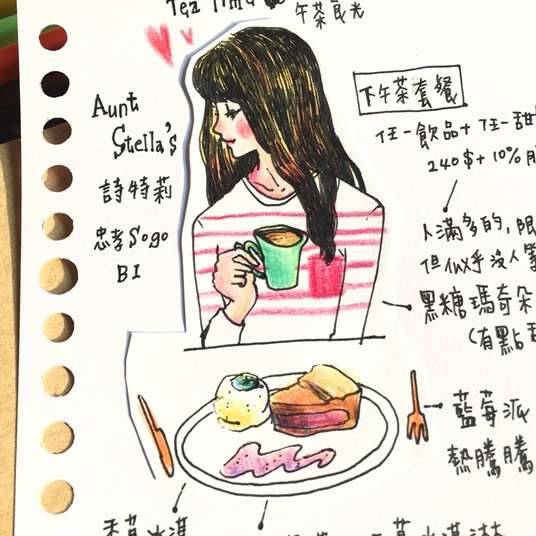 Tea Time
午茶良光
Aunt
Stella's
詩特莉
忠孝Sogo
B1
下午茶套餐
任一飲品+任一甜
240$+10%
人滿多的,限
但似乎沒人
黑糖瑪奇朵
(有點
藍莓派
熱騰騰